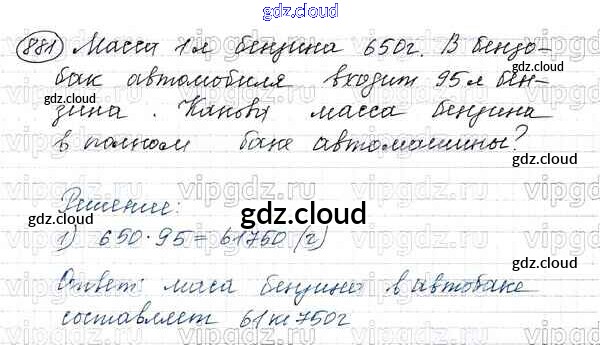 gdz.cloud
881 Масса 1 л бензина 650 г. В бензо-
бак автомобиля входит 95 л бен-
зина. Какова масса бензина
в полном баке автомашины?
gdz.cloud
gdz.cloud
gdz.cloud
Решение:
gdz.cloud
gdz.cloud
1) 650·95=61750 (г)
gdz.cloud
Ответ: маса бензина в автобаке
составляет 61кг750г
gdz.cloud
gdz.cloud